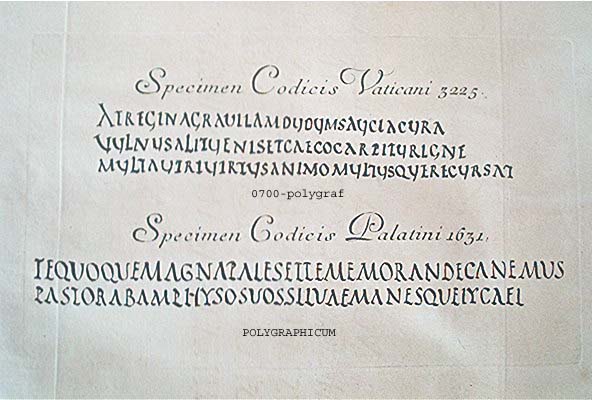 Specimen Codicis Vaticani 3225.
ATREGINAGRAUILAMDUDUMSAUCIACURA
UULNUSALITUENISETCAECOCARPITURIGNE
MULTAUIRIUIRTUSANIMOMULTUSQUERECURSAT
0700-polygraf
Specimen Codicis Palatini 1631.
TEQUOQUEMAGNAPALESETTEMEMORANDECANEMUS
PASTORABAMPHYSOSUOSSILUAEMANESQUELYCAEI
POLYGRAPHICUM